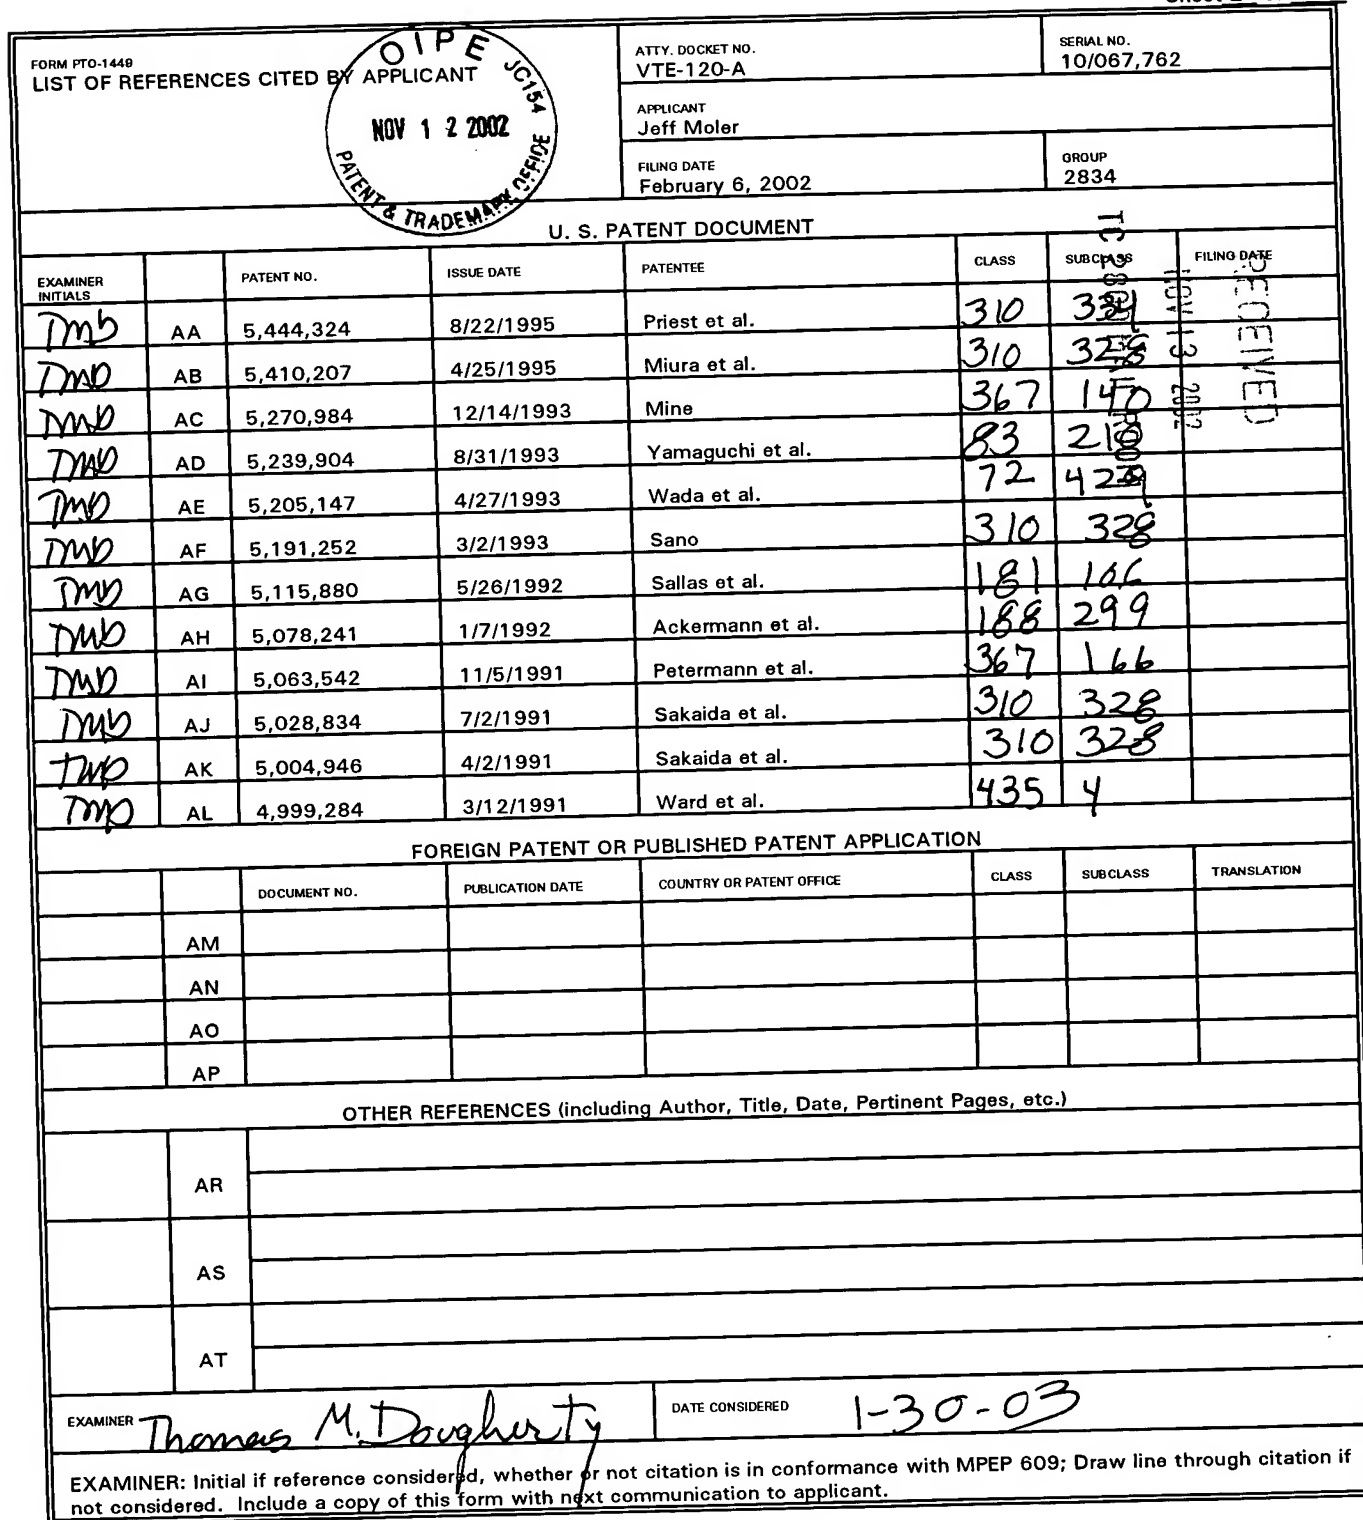 FORM PTO-1449
LIST OF REFERENCES CITED BY APPLICANT
OIPE JC154
NOV 12 2002
PATENT & TRADEMARK OFFICE
ATTY. DOCKET NO.
VTE-120-A
SERIAL NO.
10/067,762
APPLICANT
Jeff Moler
FILING DATE
February 6, 2002
GROUP
2834
U. S. PATENT DOCUMENT
EXAMINER INITIALS PATENT NO. ISSUE DATE PATENTEE CLASS SUBCLASS FILING DATE
RECEIVED
NOV 13 2002
TMD AA 5,444,324 8/22/1995 Priest et al. 310
TMD AB 5,410,207 4/25/1995 Miura et al. 310 328
TMD AC 5,270,984 12/14/1993 Mine 367 140
TMD AD 5,239,904 8/31/1993 Yamaguchi et al. 83
TMD AE 5,205,147 4/27/1993 Wada et al. 72
TMD AF 5,191,252 3/2/1993 Sano 310 328
TMD AG 5,115,880 5/26/1992 Sallas et al. 181 106
TMD AH 5,078,241 1/7/1992 Ackermann et al. 188 299
TMD AI 5,063,542 11/5/1991 Petermann et al. 367 166
TMD AJ 5,028,834 7/2/1991 Sakaida et al. 310 328
TMD AK 5,004,946 4/2/1991 Sakaida et al. 310 328
TMD AL 4,999,284 3/12/1991 Ward et al. 435 4
FOREIGN PATENT OR PUBLISHED PATENT APPLICATION
DOCUMENT NO. PUBLICATION DATE COUNTRY OR PATENT OFFICE CLASS SUBCLASS TRANSLATION
AM
AN
AO
AP
OTHER REFERENCES (including Author, Title, Date, Pertinent Pages, etc.)
AR
AS
AT
EXAMINER Thomas M. Dougherty DATE CONSIDERED 1-30-03
EXAMINER: Initial if reference considered, whether or not citation is in conformance with MPEP 609; Draw line through citation if
not considered. Include a copy of this form with next communication to applicant.